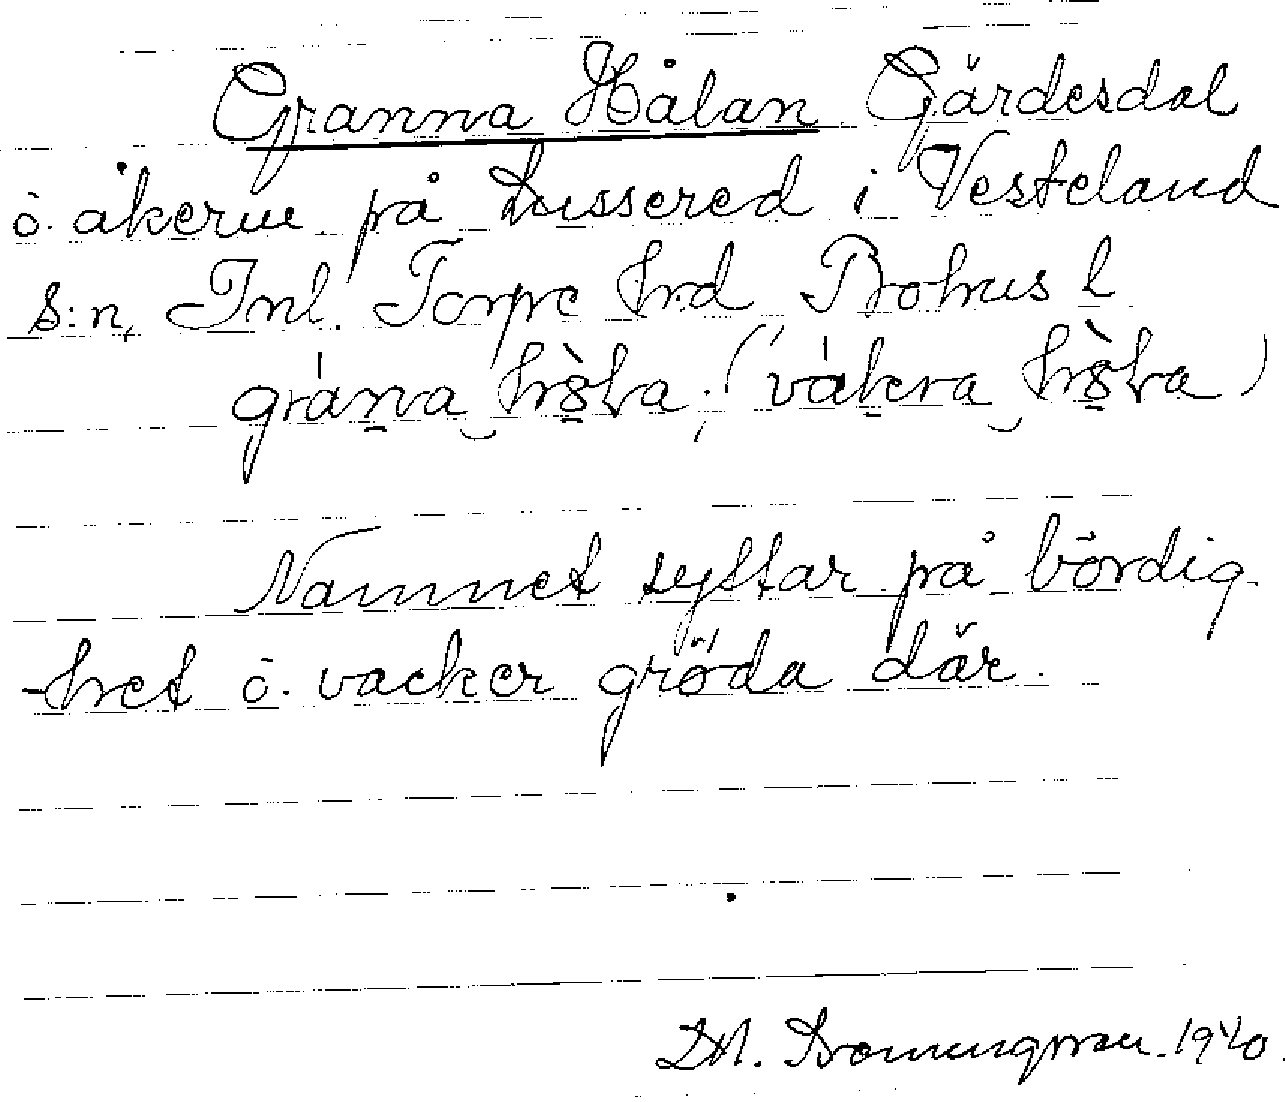 Granna Hålan Gärdesdal
ö. åkern på Lussered i Vesteland
s:n, Inl. Torpe hrd Bohus l
grána hs̥̀la. (vákra hs̥̀la)
Namnet syftar på bördig-
-het ö. vacker gröda där.
1940.